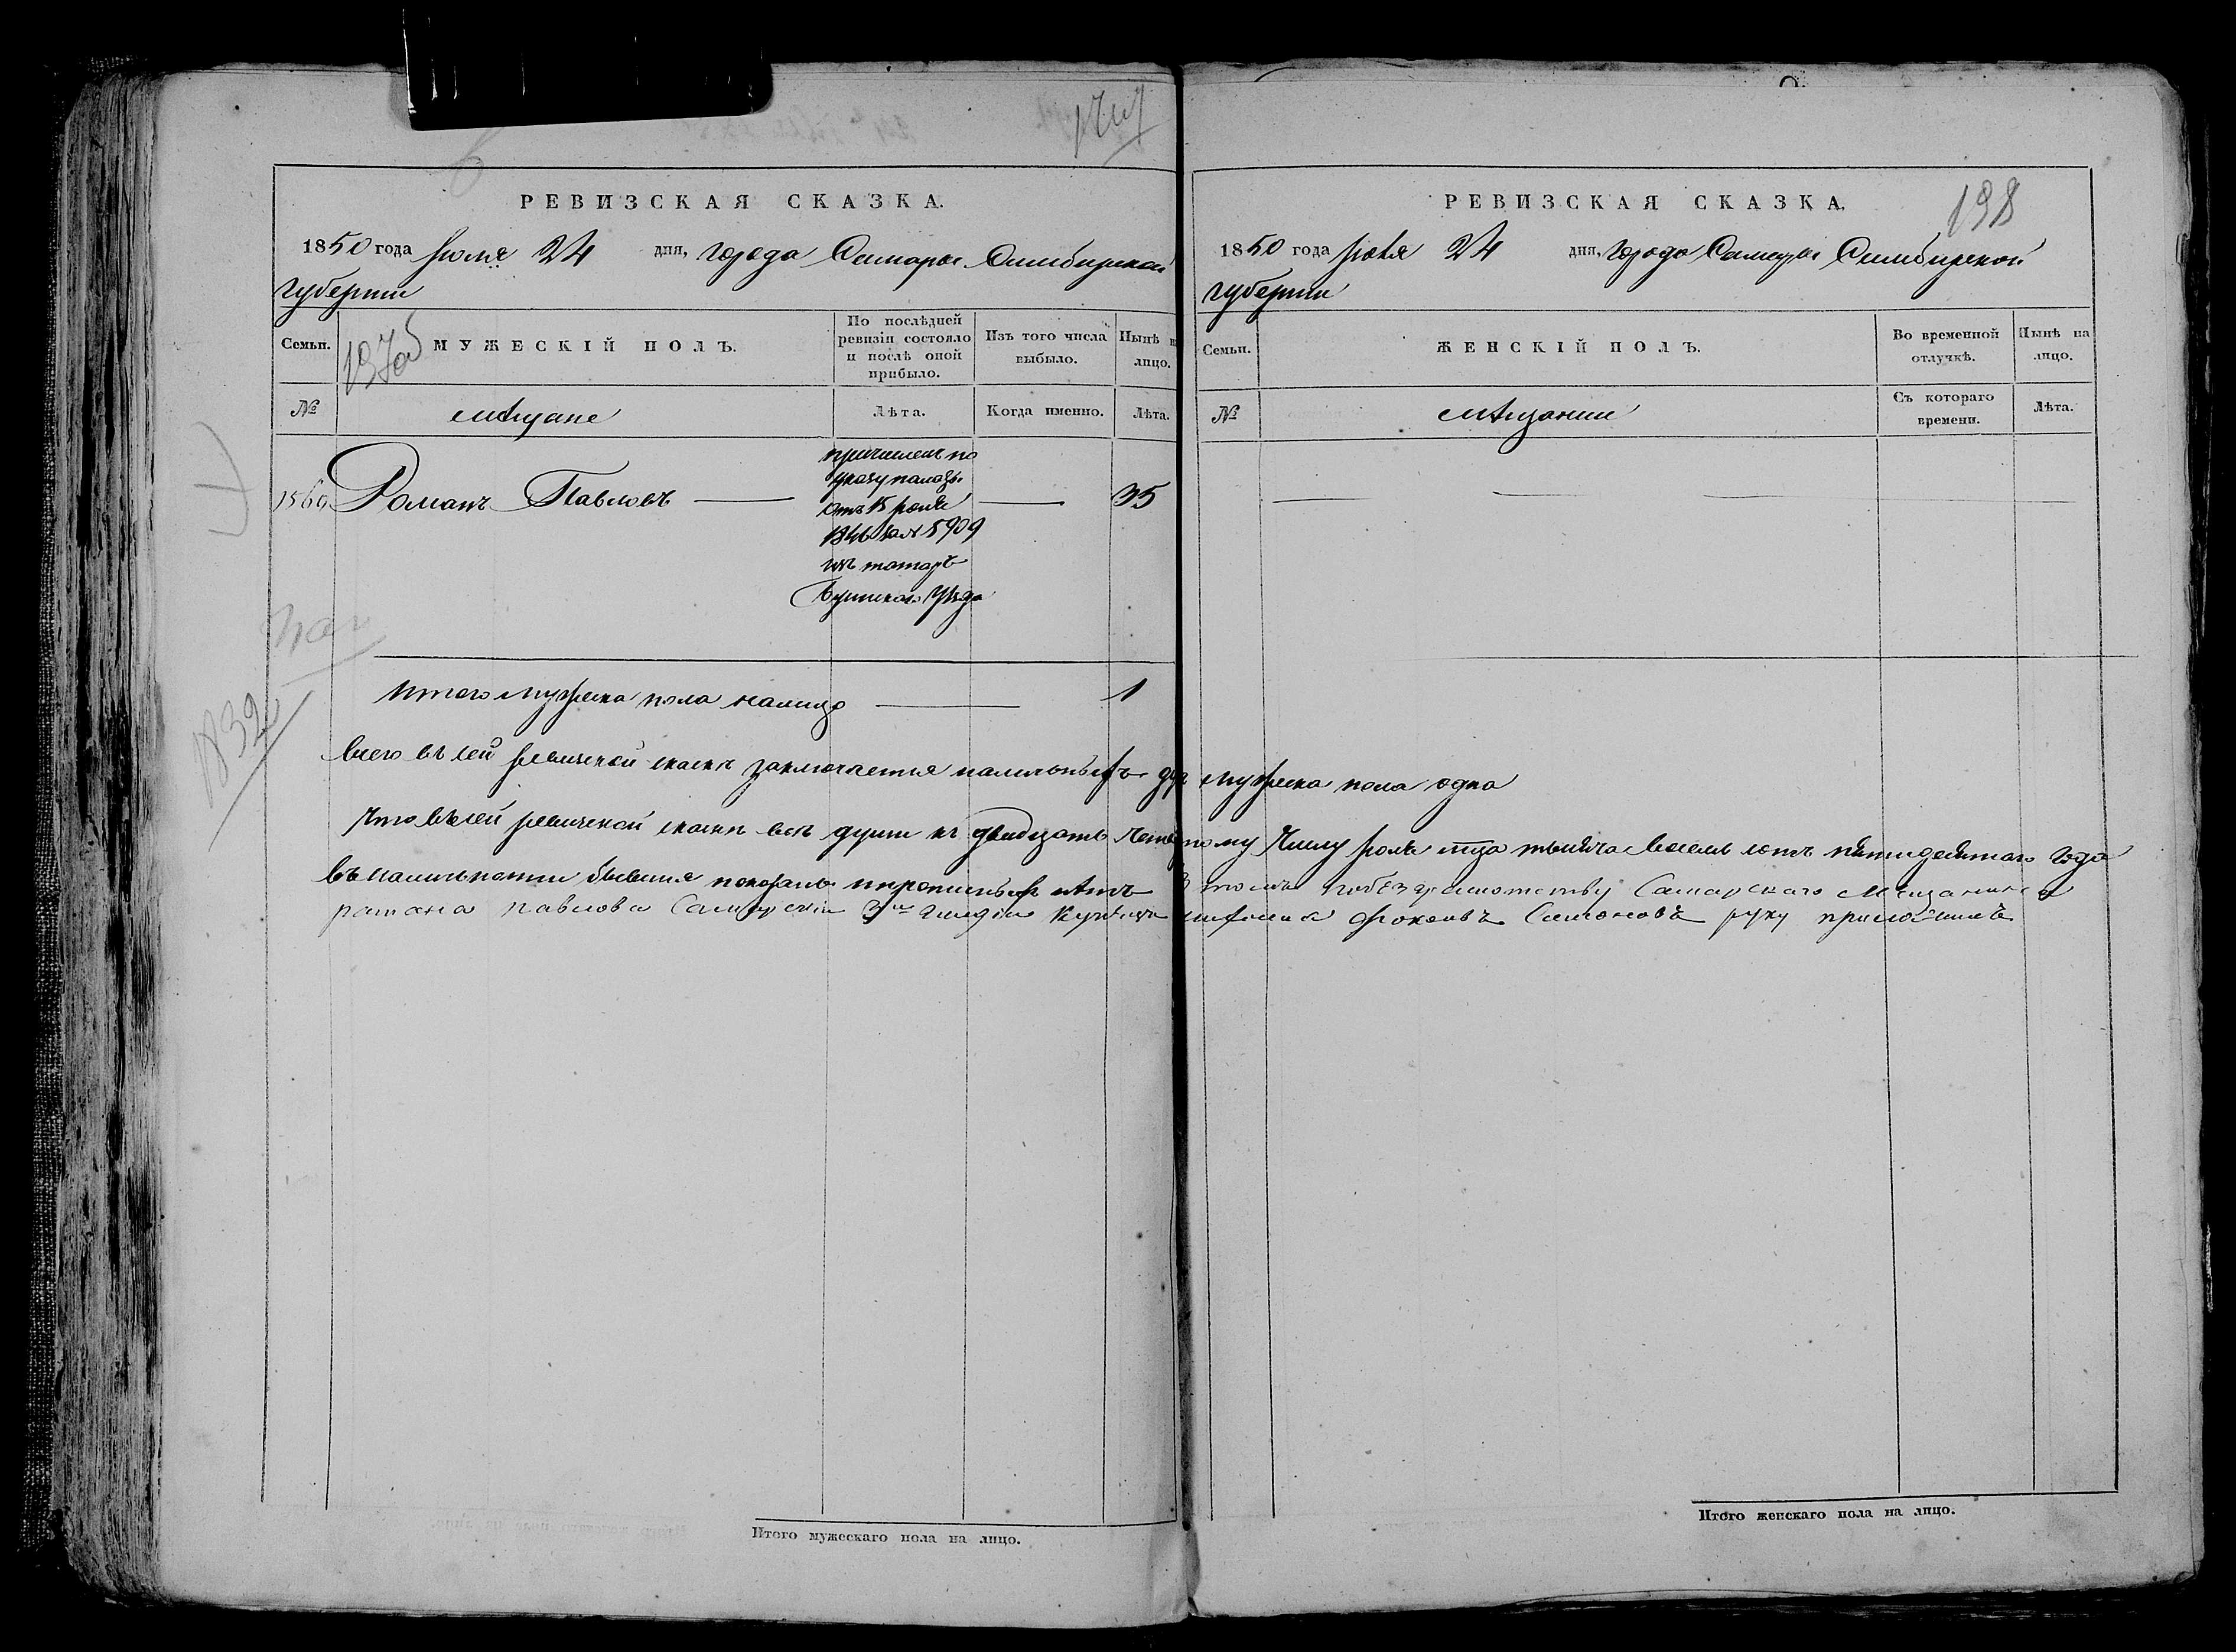 РЕВИЗСКАЯ СКАЗКА.
1850 года Июля 24 дня, города Самары Симбирской
губернии
Семьи.
МУЖЕСКІЙ ПОЛЪ.
По послѣдней
ревизіи состояло
и послѣ оной
прибыло.
Изъ того числа
выбыло.
Нынѣ н
лицо.
№
мѣщане
Лѣта.
Когда именно.
Лѣта.
1560
Романъ Павловъ
причисленъ по
указу палаты
отъ 15 Іюля
1846 за № 5909
изъ татаръ
уѣзда
35
Итого мужеска пола налицо 1
197об
1832
РЕВИЗСКАЯ СКАЗКА.
198
1850 года Июля 24 дня, города Самары Симбирской
губернии
Семьи.
ЖЕНСКІЙ ПОЛЪ.
Во временной
отлучкѣ.
Нынѣ на
лицо.
№
мѣщанки
Съ котораго
времени.
Лѣта.
всего въ сей ревизской сказкѣ заключается наличныхъ душ мужеска пола одна
Что въ сей ревизской сказкѣ всѣ души къ двадцать четвертому числу Июля тысяча восемь сотъ пятидесятаго года
въ наличности бывшія показаны и прописныхъ нѣтъ В томъ побезграмотству Самарскаго Мещанина
рамана павлова Самарскій 3й гилдіи Купецъ Фокеевъ Самоновъ руку приложилъ
Итого мужескаго пола на лицо.
Итого женскаго пола на лицо.